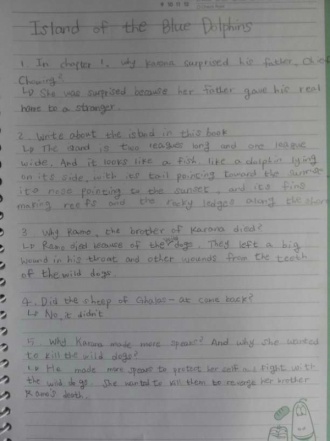 Island of the Blue Dolphins
1. In chapter 1, why karana surprised his father, Chief
Chowing?
↳ She was surprised because her father gave his real
name to a stranger.
2. Write about the island in this book
↳ The island is two leagues long and one league
wide. And it looks like a fish, like a dolphin lying
on its side, with its tail pointing toward the sunrise
its nose pointing to the sunset, and its fins
making reefs and the rocky ledges along the shore
3. Why Ramo, the brother of Karana died?
↳ Ramo died because of the dogs. They left a big
wound in his throat and other wounds from the teeth
of the wild dogs.
4. Did the of Ghalas-at come back?
↳ No, it didn't
5. Why Karana made more spears? And why she wanted
to kill the wild dogs?
↳ He made more spears to protect her self and fight with
the wild dogs. She wanted to kill them to revenge her brother
Ramo's death.